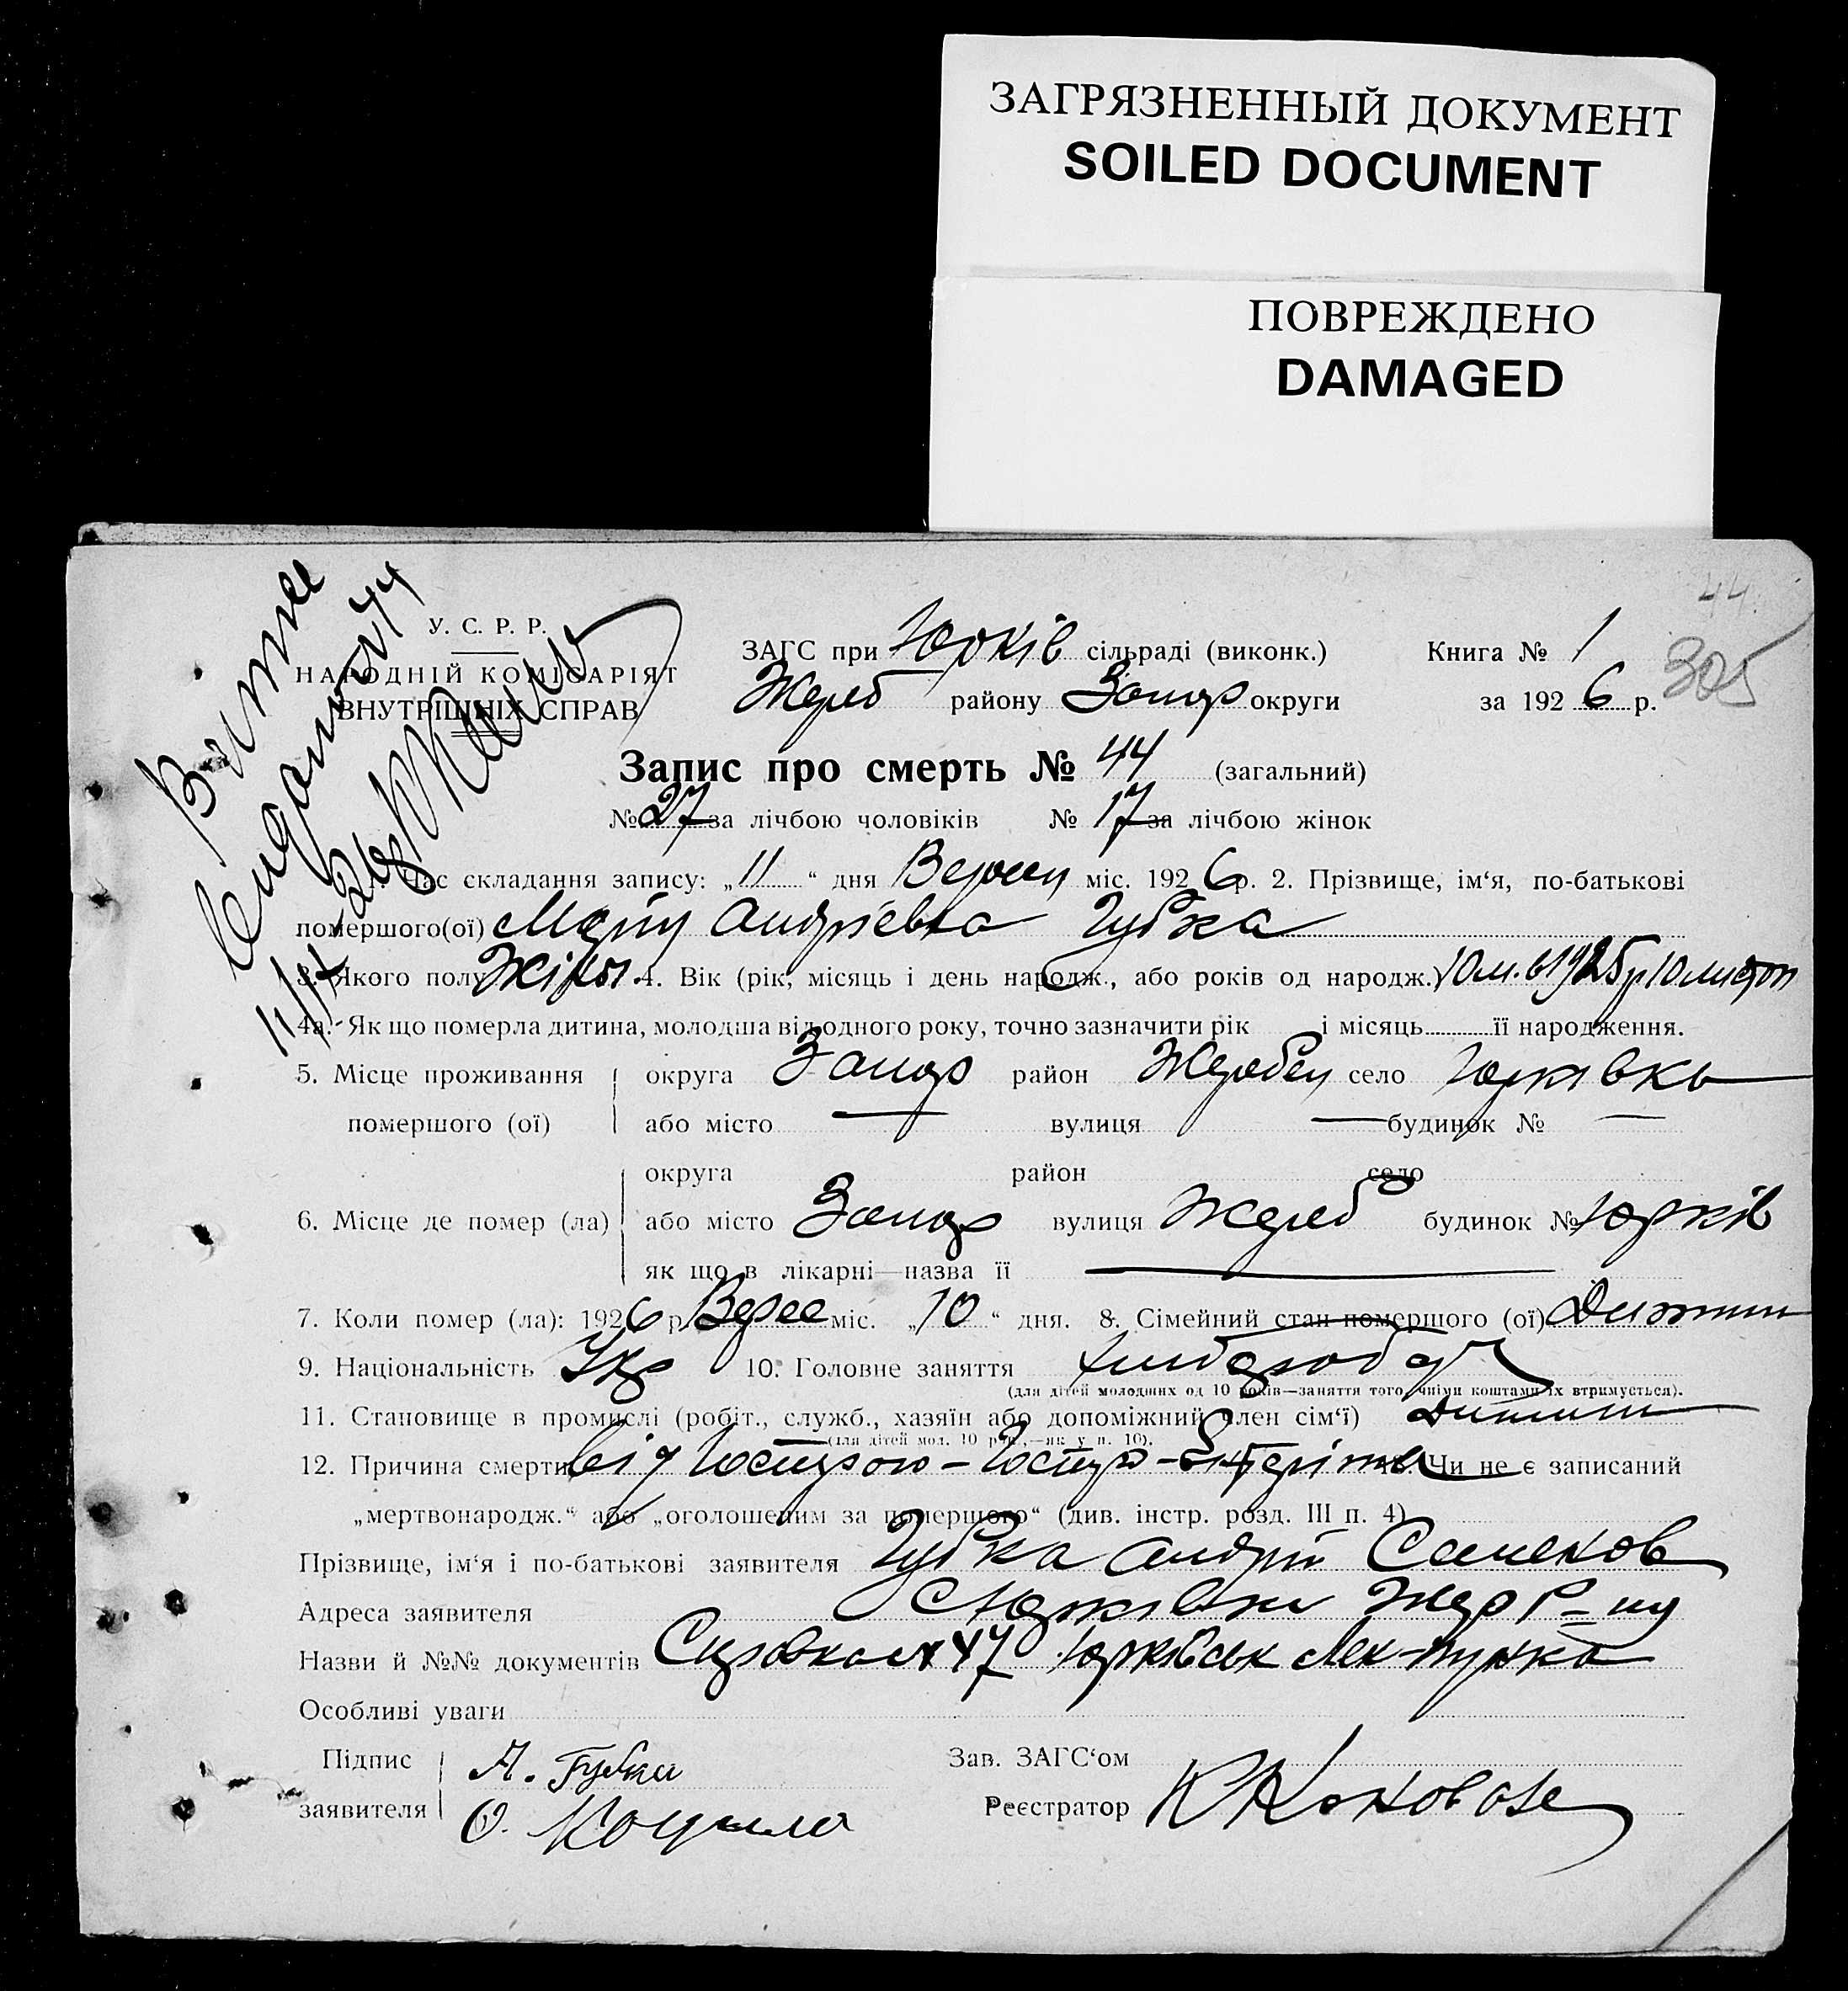 ЗАГРЯЗНЕННЫЙ ДОКУМЕНТ
SOILED DOCUMENT
ПОВРЕЖДЕНО
DAMAGED
44.
305
У. С. Р. Р.
НАРОДНІЙ КОМІСАРІЯТ
ВНУТРІШНІХ СПРАВ
ЗАГС при Юрків сільраді (виконк.) Книга № 1
Жереб району Запор округи за 1926 р.
Запис про смерть № 44 (загальний)
№ 27 за лічбою чоловіків № 17 за лічбою жінок
Час складання запису: „11“ дня Вересн міс. 1926 р. 2. Прізвище, ім‘я, по-батькові
помершого(ої) Марія Андрієвна Губка
3. Якого полу 4. Вік (рік, місяць і день народж., або років од народж.) 10 м. 1925 р 10 листоп
4а. Як що померла дитина, молодша від одного року, точно зазначити рік і місяць її народження.
5. Місце проживання округа Запор район Жеребец село Юрківка
помершого (ої) або місто — вулиця — будинок № —
округа район село
6. Місце де помер (ла) або місто Запор вулиця Жереб будинок № Юрків
як що в лікарні—назва її —
7. Коли помер (ла): 1926 р. Верес міс. „10“ дня. 8. Сімейний стан помершого (ої) Дитина
9. Національність Укр 10. Головне заняття хлібороб
(для дітей молодших од 10 років—заняття того, чиїми коштами їх втримується).
11. Становище в промислі (робіт., служб., хазяїн або допоміжний член сім‘ї) Дитина
(для дітей мол. 10 рок.,—як у п. 10).
12. Причина смерти від Гострого - Гостр - Ентеріта 13. Чи не є записаний
„мертвонародж.“ або „оголошеним за помершого“ (див. інстр. розд. III п. 4)
Прізвище, ім‘я і по-батькові заявителя Губка Андрій Семенов
Адреса заявителя с Юрківки Жер Р-ну
Назви й №№ документів Справка № 47 Юрківськ Лек-пункта
Особливі уваги
Підпис А. Губка Зав. ЗАГС‘ом
заявителя О. Реєстратор Коновал